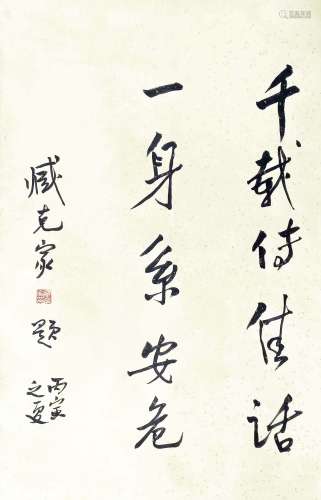 千载传佳话
一身系安危
臧克家
题
丙寅
之夏